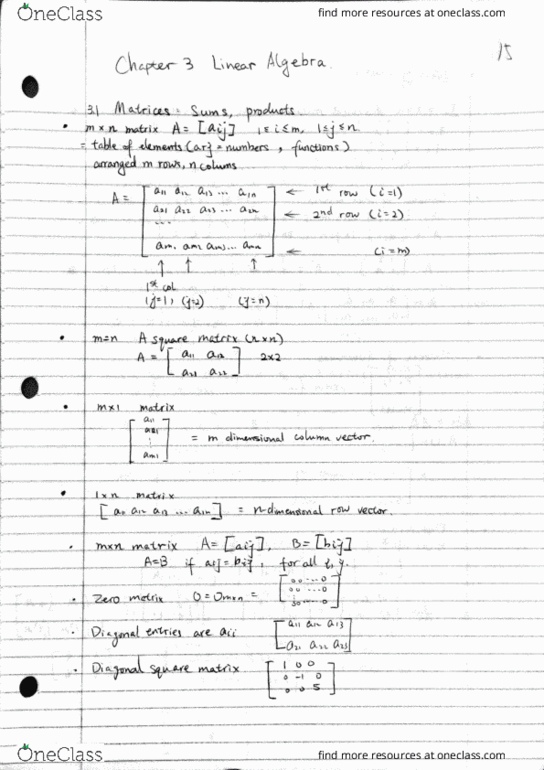 OneClass find more resources at oneclass.com
15
Chapter 3 Linear Algebra.
3.1 Matrices: Sums, products
• m×n matrix A = [aij] 1≤i≤m, 1≤j≤n.
= table of elements (aij = numbers, functions)
arranged m rows, n colums
A = [ a11 a12 a13 ... a1n ← 1st row (i=1)
a21 a22 a23 ... a2n ← 2nd row (i=2)
...
am1 am2 am3 ... amn ] ← (i=m)
↑ ↑ ↑
1st col
(j=1), (j=2) (j=n)
• m=n A square matrix (n×n)
A = [ a11 a12
a21 a22 ] 2x2
• m×1 matrix
[ a11
a21
⋮
am1 ] = m dimensional column vector.
• 1×n matrix
[ a11 a12 a13 ... a1n ] = n-dimensional row vector.
• m×n matrix A = [aij], B = [bij]
A=B if aij = bij, for all i, j.
• Zero matrix 0 = 0m×n = [ 0 0 ... 0
0 0 ... 0
0 ... 0 ]
• Diagonal entries are aii [ a11 a12 a13
a21 a22 a23 ]
• Diagonal square matrix [ 1 0 0
0 -1 0
0 0 5 ]
OneClass find more resources at oneclass.com